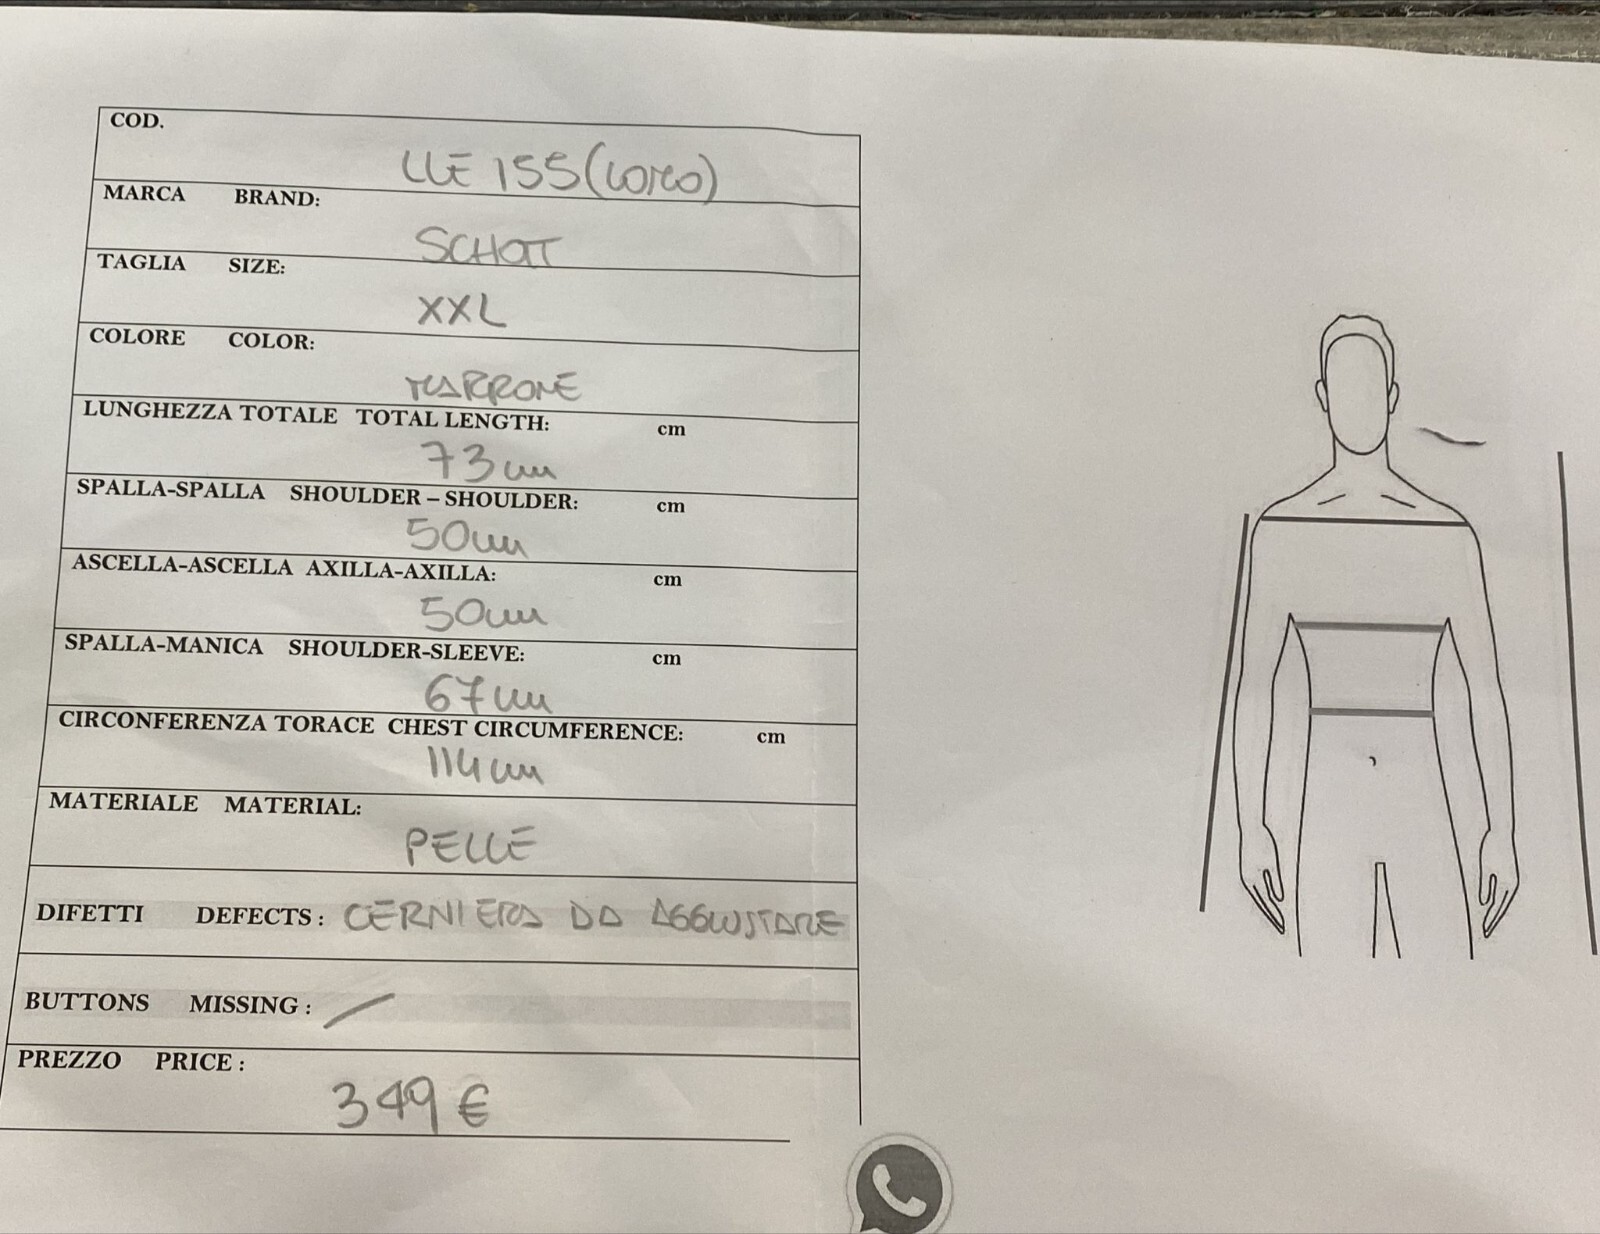 COD.
LLE 155 (LORCO)
MARCA BRAND:
SCHOTT
TAGLIA SIZE:
XXL
COLORE COLOR:
MARRONE
LUNGHEZZA TOTALE TOTAL LENGTH: cm
73 cm
SPALLA-SPALLA SHOULDER – SHOULDER: cm
50 cm
ASCELLA-ASCELLA AXILLA-AXILLA: cm
50 cm
SPALLA-MANICA SHOULDER-SLEEVE: cm
67 cm
CIRCONFERENZA TORACE CHEST CIRCUMFERENCE: cm
114 cm
MATERIALE MATERIAL:
PELLE
DIFETTI DEFECTS : CERNIERA DA AGGIUSTARE
BUTTONS MISSING :
PREZZO PRICE :
349 €